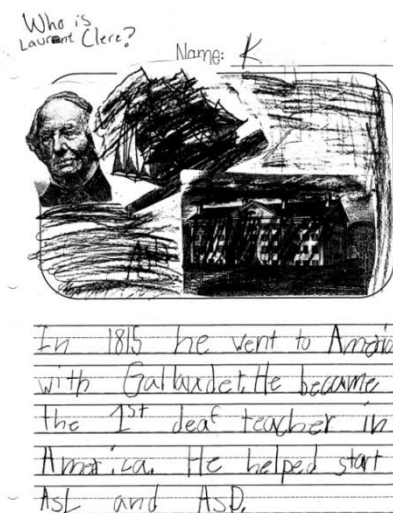 Who is
Laurent Clerc?
Name: K
In 1815 he went to America
with Gallaudet. He became
the 1st deaf teacher in
America. He helped start
ASL and ASD.